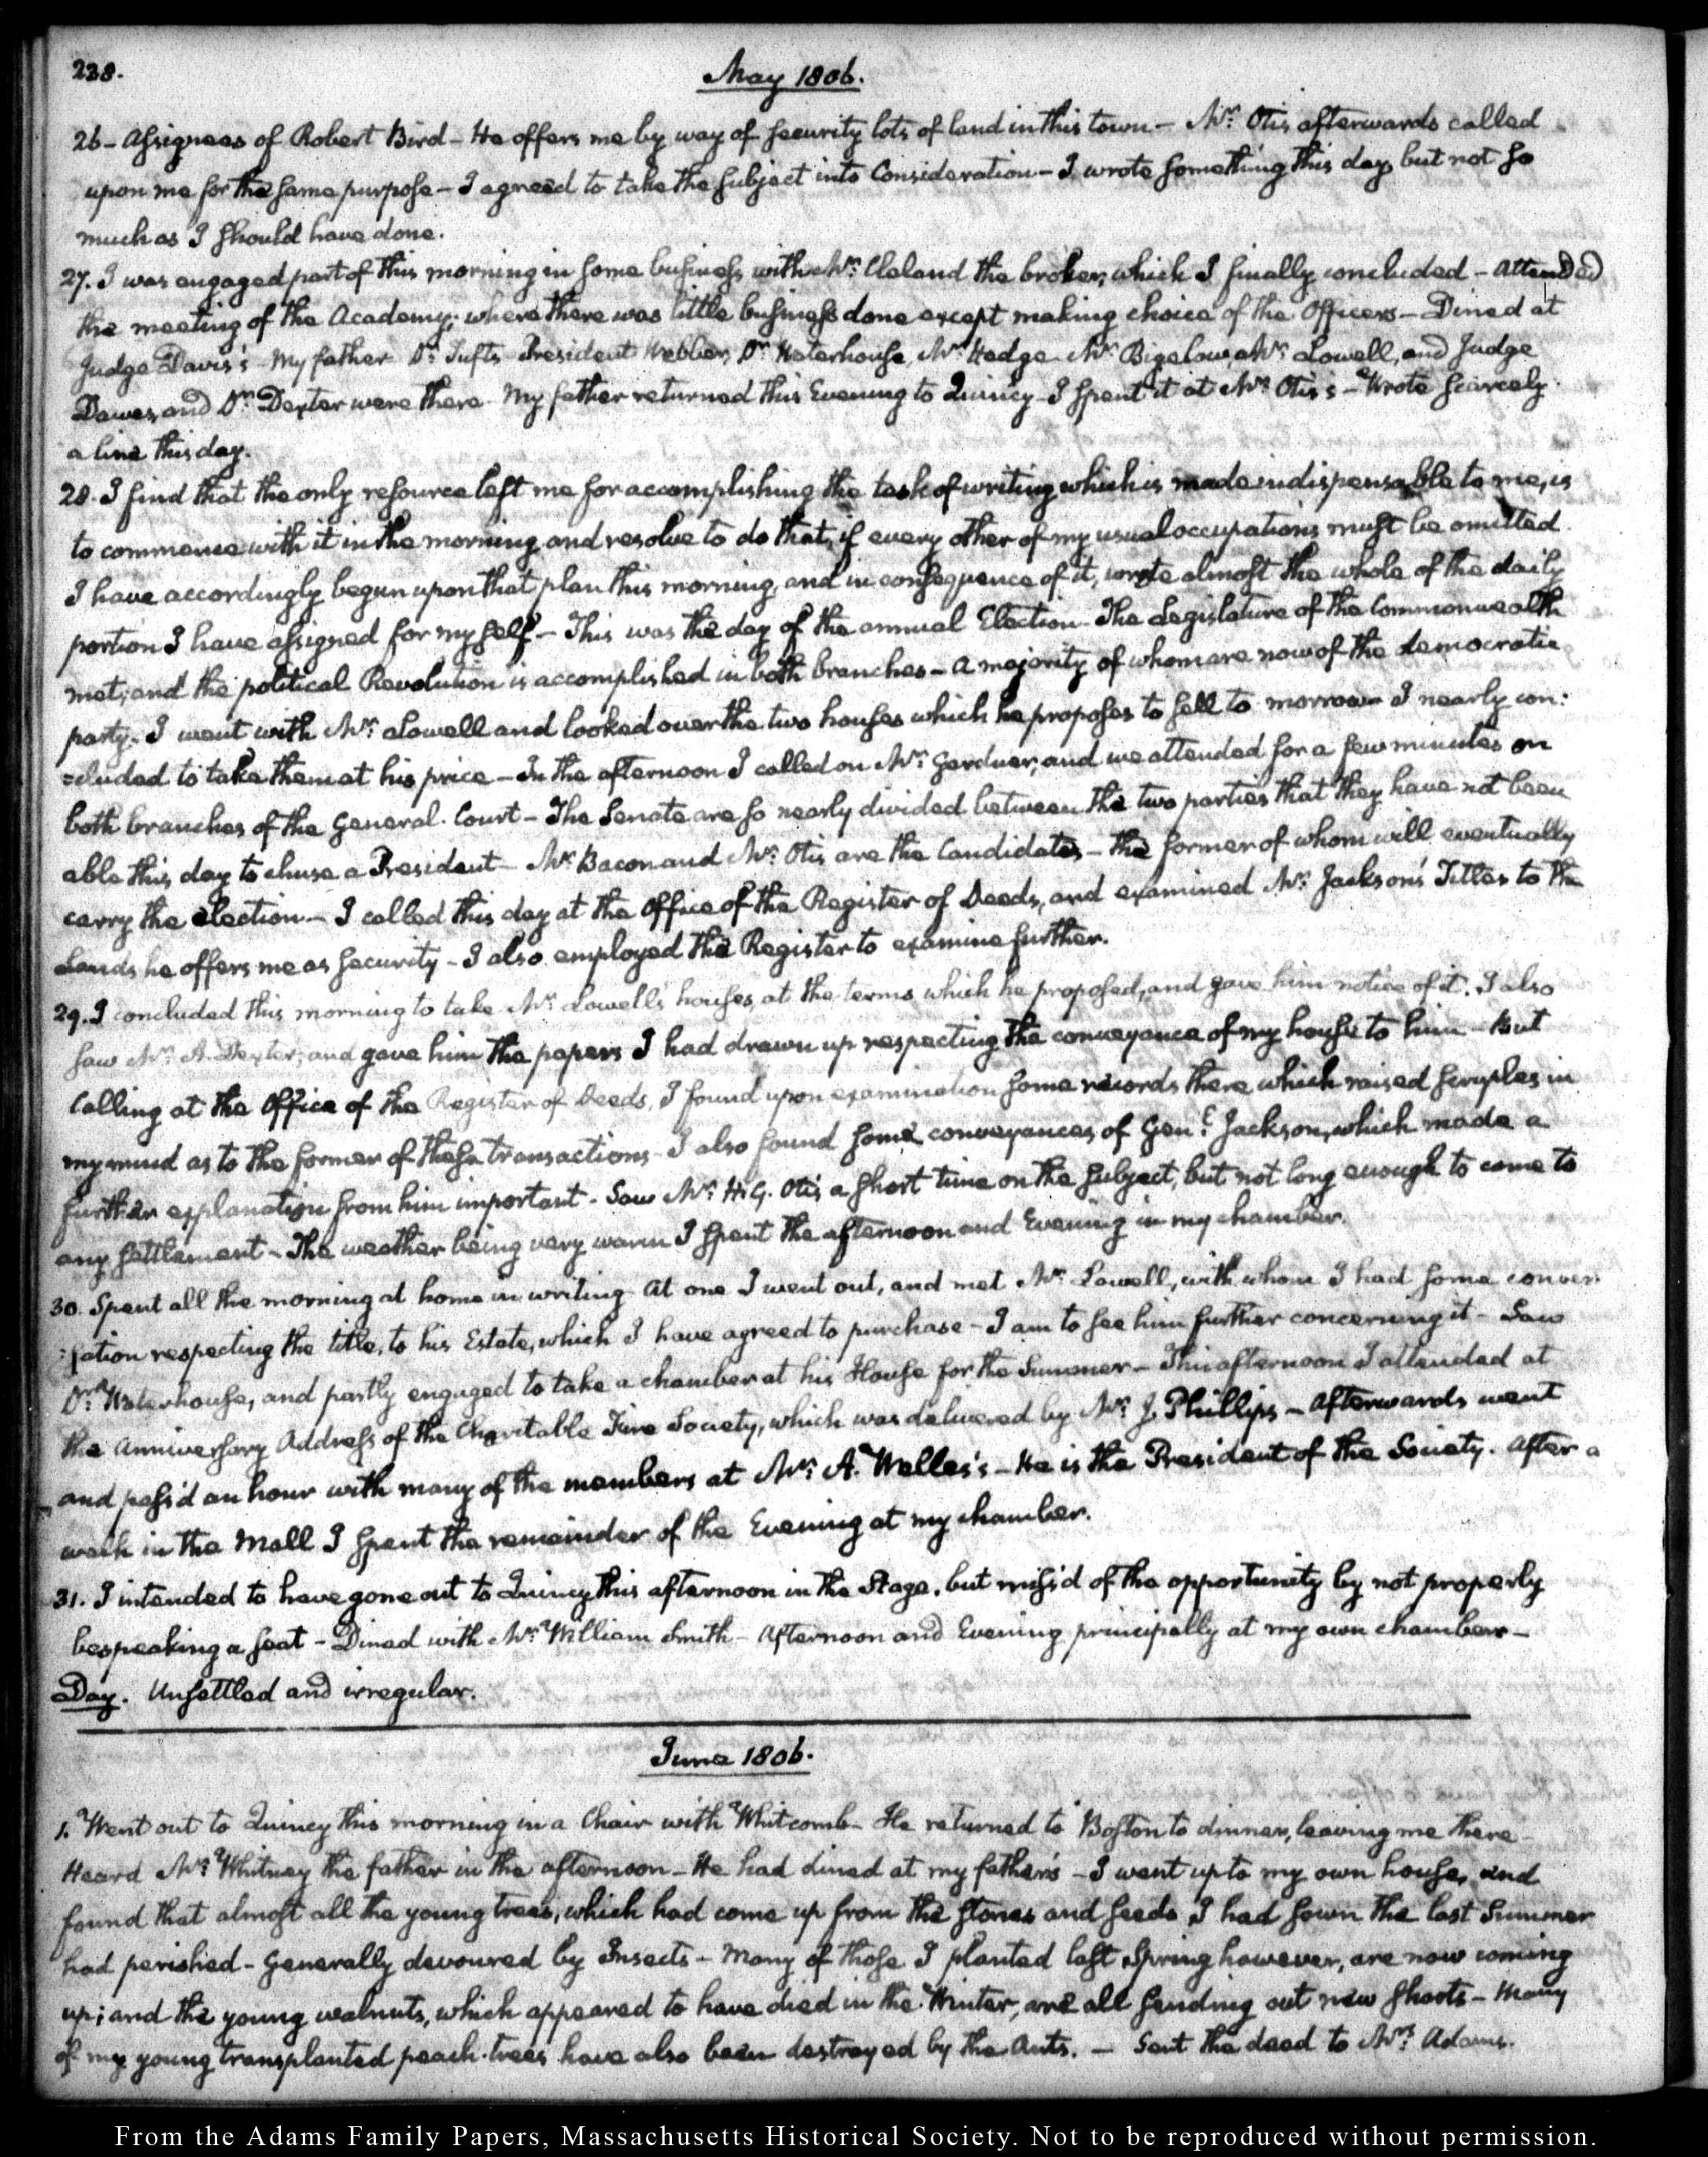 238.
May 1806.
26 - Assignees of Robert Bird - He offers me by way of security lots of land in this town - Mr. Otis afterwards called
upon me for the same purpose - I agreed to take the subject into Consideration - I wrote something this day, but not so
much as I should have done.
27. I was engaged part of this morning in some business with Mr. Cleland the broker, which I finally concluded - Attended
the meeting of the Academy; where there was little business done except making choice of the Officers - Dined at
Judge Davis's - My father Dr. Tufts President Webber, Dr. Waterhouse, Mr. Hedge Mr. Bigelow, Mr. Lowell, and Judge
Dawes, and Dr. Dexter were there - My father returned this Evening to Quincy - I spent it at Mr. Otis's - Wrote scarcely
a line this day.
28. I find that the only resource left me for accomplishing the task of writing which is made indispensable to me, is
to commence with it in the morning and resolve to do that, if every other of my usual occupations must be omitted
I have accordingly begun upon that plan this morning, and in consequence of it, wrote almost the whole of the daily
portion I have assigned for myself - This was the day of the annual Election - The Legislature of the Commonwealth
met; and the political Revolution is accomplished in both branches - a majority of whom are now of the democratic
party - I went with Mr. Lowell and looked over the two houses which he proposes to sell to morrow - I nearly con:
:cluded to take them at his price - In the afternoon I called on Mr. Gardner, and we attended for a few minutes on
both branches of the General Court - The Senate are so nearly divided between the two parties that they have not been
able this day to chuse a President - Mr. Bacon and Mr. Otis are the Candidates - the former of whom will eventually
carry the election - I called this day at the Office of the Register of Deeds, and examined Mr. Jackson's Titles to the
Lands he offers me as security - I also employed the Register to examine further.
29. I concluded this morning to take Mr. Lowell's houses, at the terms which he proposed, and gave him notice of it. I also
saw Mr. A. Dexter; and gave him the papers I had drawn up respecting the conveyance of my house to him - But
Calling at the Office of the Register of Deeds, I found upon examination some records there which raised scruples in
my mind as to the former of these transactions - I also found some conveyances of Genl. Jackson, which made a
further explanation from him important - Saw Mr. H. G. Otis a short time on the subject, but not long enough to come to
any settlement - The weather being very warm I spent the afternoon and Evening in my chamber.
30. Spent all the morning at home in writing - At one I went out, and met Mr. Lowell, with whom I had some conver
:sation respecting the title, to his Estate, which I have agreed to purchase - I am to see him further concerning it - Saw
Dr. Waterhouse, and partly engaged to take a chamber at his House for the Summer - This afternoon I attended at
the Anniversary Address of the Charitable Fire Society, which was delivered by Mr. J. Phillips - Afterwards went
and pass'd an hour with many of the members at Mr. A. Welles's - He is the President of the Society. After a
walk in the Mall I spent the remainder of the Evening at my chamber.
31. I intended to have gone out to Quincy this afternoon in the Stage, but miss'd of the opportunity by not properly
bespeaking a seat - Dined with Mr. William Smith - Afternoon and Evening principally at my own chamber -
Day. Unsettled and irregular.
June 1806.
1. Went out to Quincy this morning in a Chair with Whitcomb - He returned to Boston to dinner, leaving me there -
Heard Mr. Whitney the father in the afternoon - He had dined at my father's - I went up to my own house, and
found that almost all the young trees, which had come up from the stones and seeds I had sown the last Summer
had perished - Generally devoured by Insects - Many of those I planted last Spring however, are now coming
up; and the young walnuts, which appeared to have died in the Winter, are all sending out new shoots - Many
of my young transplanted peach-trees have also been destroyed by the Ants. - Sent the deed to Mrs. Adams.
From the Adams Family Papers, Massachusetts Historical Society. Not to be reproduced without permission.